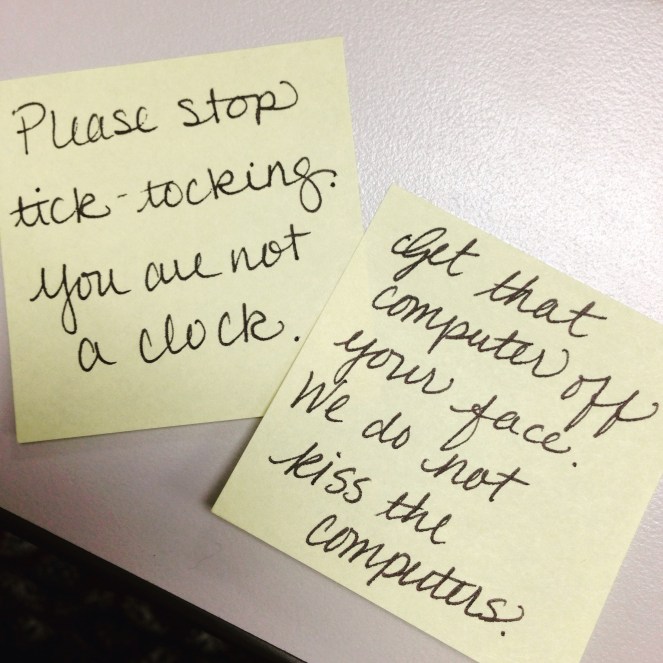 Please stop
tick-tocking.
you are not
a clock.
Get that
computer off
your face.
We do not
kiss the
computers.